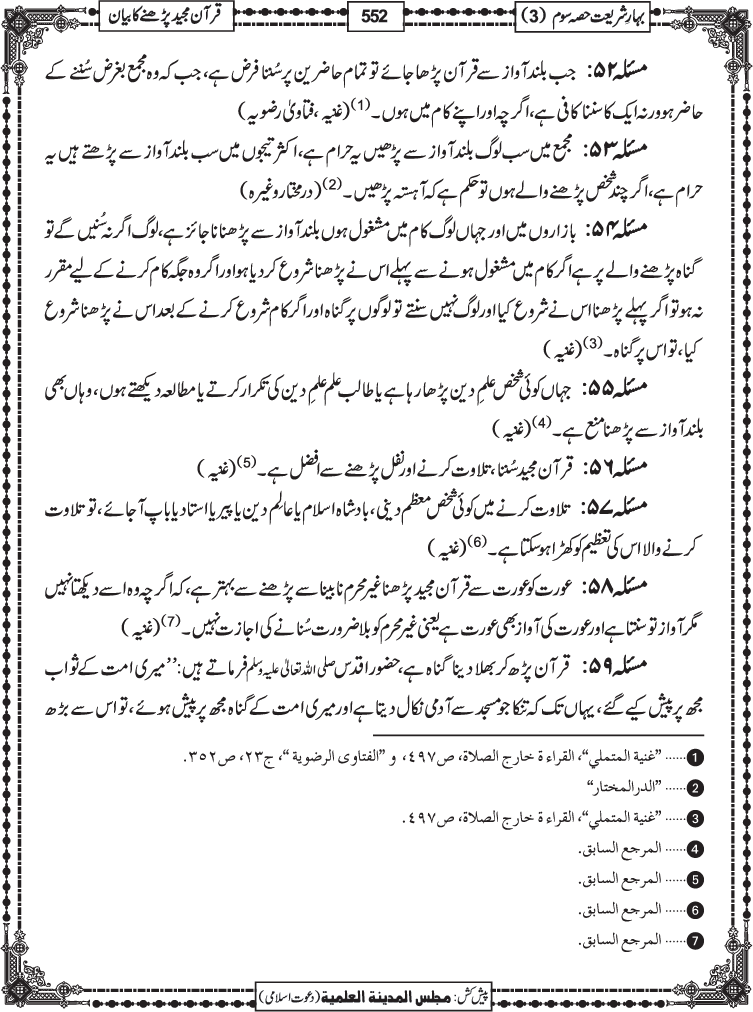 بہارِ شریعت حصہ سوم (3)
552
قرآن مجید پڑھنے کا بیان
مسئلہ ۵۲: جب بلند آواز سے قرآن پڑھا جائے تو تمام حاضرین پر سُننا فرض ہے، جب کہ وہ مجمع بغرض سُننے کے
حاضر ہو ورنہ ایک کا سننا کافی ہے، اگرچہ اور اپنے کام میں ہوں۔ (1) (غنیہ، فتاویٰ رضویہ)
مسئلہ ۵۳: مجمع میں سب لوگ بلند آواز سے پڑھیں یہ حرام ہے، اکثر تیجوں میں سب بلند آواز سے پڑھتے ہیں یہ
حرام ہے، اگر چند شخص پڑھنے والے ہوں تو حکم ہے کہ آہستہ پڑھیں۔ (2) (درمختار وغیرہ)
مسئلہ ۵۴: بازاروں میں اور جہاں لوگ کام میں مشغول ہوں بلند آواز سے پڑھنا ناجائز ہے، لوگ اگر نہ سُنیں گے تو
گناہ پڑھنے والے پر ہے اگر کام میں مشغول ہونے سے پہلے اس نے پڑھنا شروع کر دیا ہو اور اگر وہ جگہ کام کرنے کے لیے مقرر
نہ ہو تو اگر پہلے پڑھنا اس نے شروع کیا اور لوگ نہیں سنتے تو لوگوں پر گناہ اور اگر کام شروع کرنے کے بعد اس نے پڑھنا شروع
کیا، تو اس پر گناہ۔ (3) (غنیہ)
مسئلہ ۵۵: جہاں کوئی شخص علمِ دین پڑھا رہا ہے یا طالب علم علمِ دین کی تکرار کرتے یا مطالعہ دیکھتے ہوں، وہاں بھی
بلند آواز سے پڑھنا منع ہے۔ (4) (غنیہ)
مسئلہ ۵۶: قرآن مجید سُننا، تلاوت کرنے اور نفل پڑھنے سے افضل ہے۔ (5) (غنیہ)
مسئلہ ۵۷: تلاوت کرنے میں کوئی شخص معظم دینی، بادشاہ اسلام یا عالِم دین یا پیر یا استاد یا باپ آجائے، تو تلاوت
کرنے والا اس کی تعظیم کو کھڑا ہو سکتا ہے۔ (6) (غنیہ)
مسئلہ ۵۸: عورت کو عورت سے قرآن مجید پڑھنا غیر محرم نابینا سے پڑھنے سے بہتر ہے، کہ اگرچہ وہ اسے دیکھتا نہیں
مگر آواز تو سنتا ہے اور عورت کی آواز بھی عورت ہے یعنی غیر محرم کو بلا ضرورت سُنانے کی اجازت نہیں۔ (7) (غنیہ)
مسئلہ ۵۹: قرآن پڑھ کر بھلا دینا گناہ ہے، حضور اقدس صلی اللہ تعالیٰ علیہ وسلم فرماتے ہیں: ”میری امت کے ثواب
مجھ پر پیش کیے گئے، یہاں تک کہ تنکا جو مسجد سے آدمی نکال دیتا ہے اور میری امت کے گناہ مجھ پر پیش ہوئے، تو اس سے بڑھ
1 ...... ”غنية المتملي“، القراءة خارج الصلاة، ص٤٩٧، و ”الفتاوى الرضوية“، ج٢٣، ص٣٥٢.
2 ...... ”الدرالمختار“
3 ...... ”غنية المتملي“، القراءة خارج الصلاة، ص٤٩٧.
4 ...... المرجع السابق.
5 ...... المرجع السابق.
6 ...... المرجع السابق.
7 ...... المرجع السابق.
پیش کش: مجلس المدينة العلمية (دعوت اسلامی)